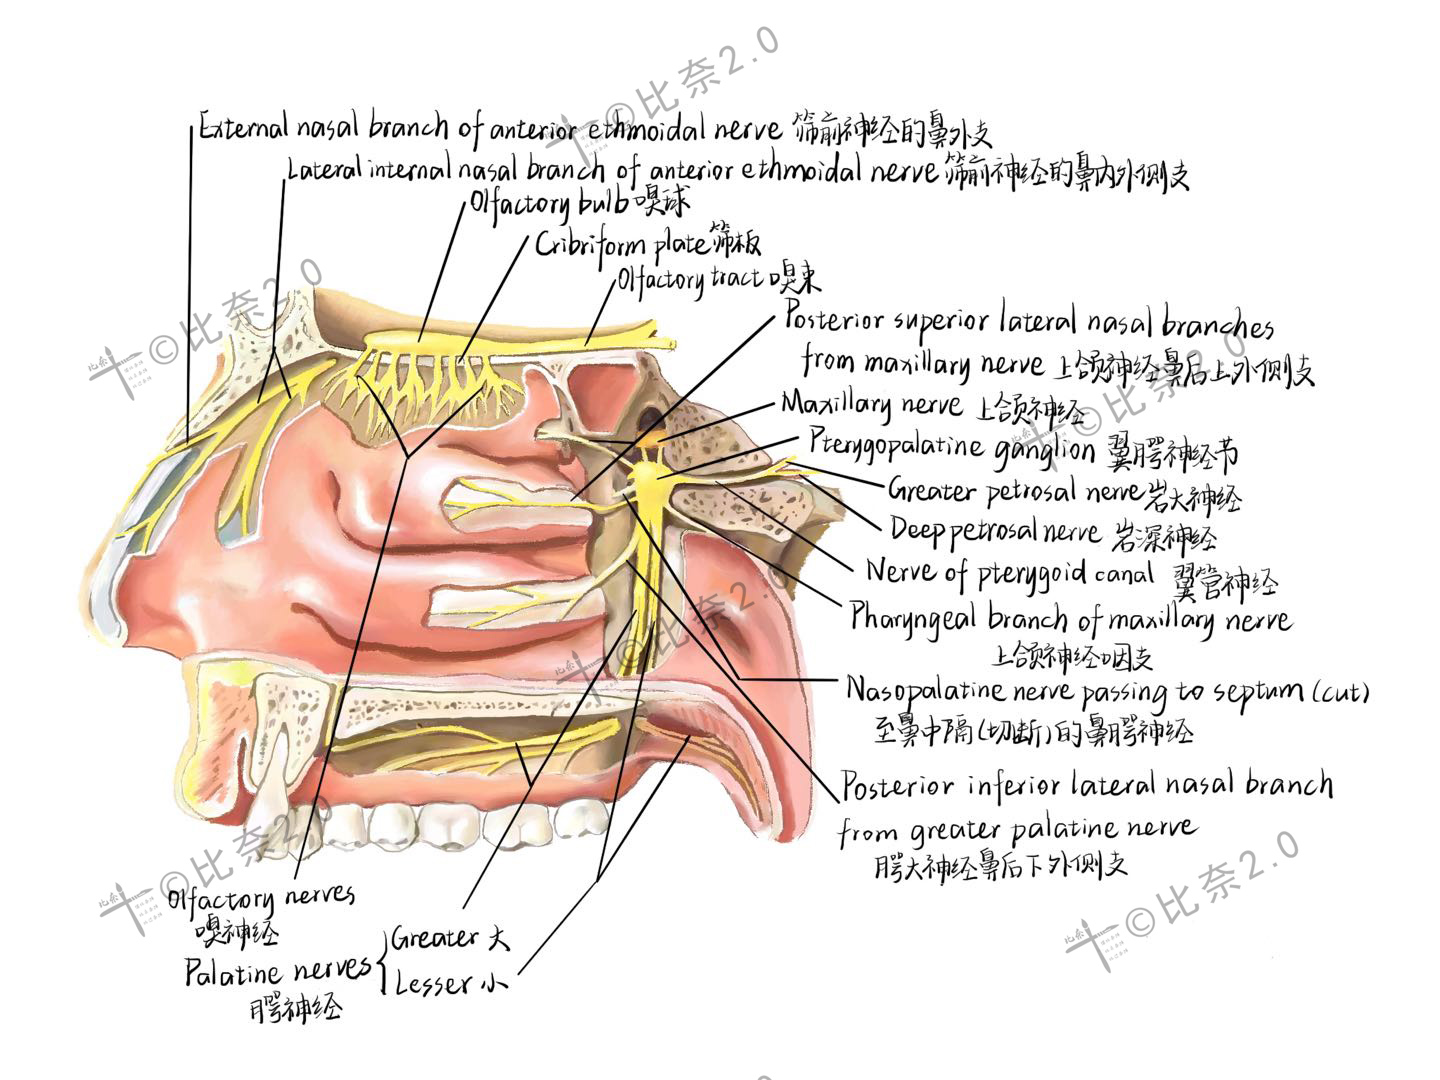 External nasal branch of anterior ethmoidal nerve 筛前神经的鼻外支
Lateral internal nasal branch of anterior ethmoidal nerve 筛前神经的鼻内外侧支
Olfactory bulb 嗅球
Cribriform plate 筛板
Olfactory tract 嗅束
Posterior superior lateral nasal branches
from maxillary nerve 上颌神经鼻后上外侧支
Maxillary nerve 上颌神经
Pterygopalatine ganglion 翼腭神经节
Greater petrosal nerve 岩大神经
Deep petrosal nerve 岩深神经
Nerve of pterygoid canal 翼管神经
Pharyngeal branch of maxillary nerve
上颌神经咽支
Nasopalatine nerve passing to septum (cut)
至鼻中隔(切断)的鼻腭神经
Posterior inferior lateral nasal branch
from greater palatine nerve
腭大神经鼻后下外侧支
Olfactory nerves
嗅神经
Palatine nerves
腭神经
Greater 大
Lesser 小
©比奈2.0
©比奈2.0
©比奈2.0
©比奈2.0
©比奈2.0
©比奈2.0